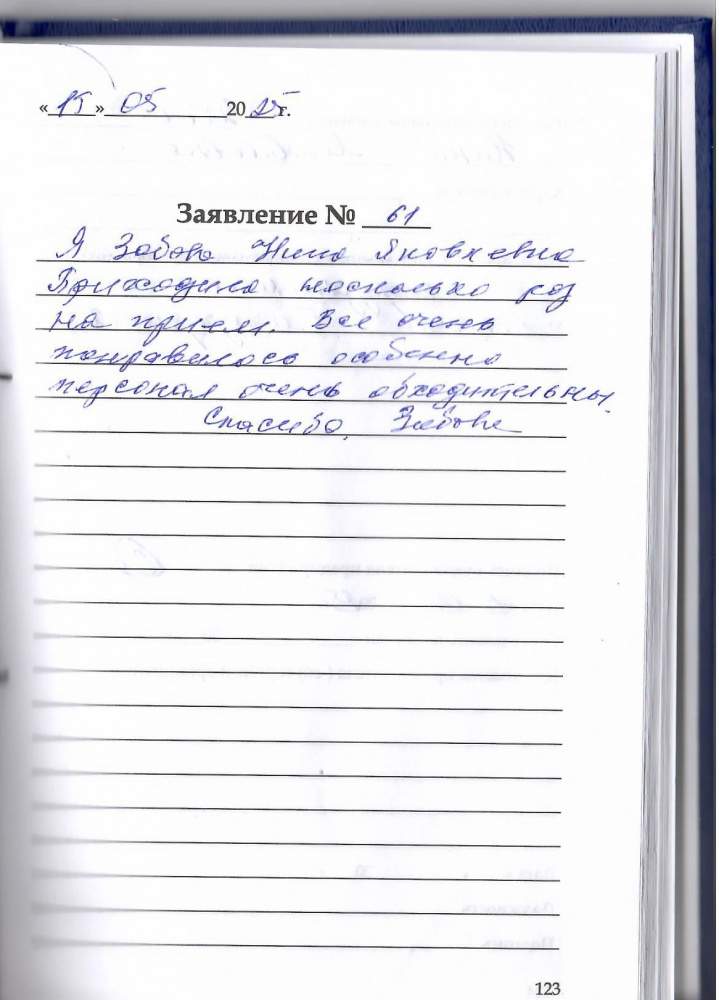 «15» 05 2025 г.
Заявление № 61
Я Забова Нина Яковлевна
Приходила несколько раз
на прием. Все очень
понравилось особенно
персонал очень обходительны.
Спасибо, Забова
123